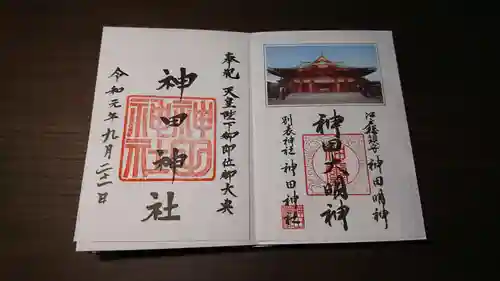 奉祝 天皇陛下御即位御大典
神田神社
令和元年九月二十一日
江戸総鎮守 神田明神
神田大明神
別表神社 神田神社
神田神社